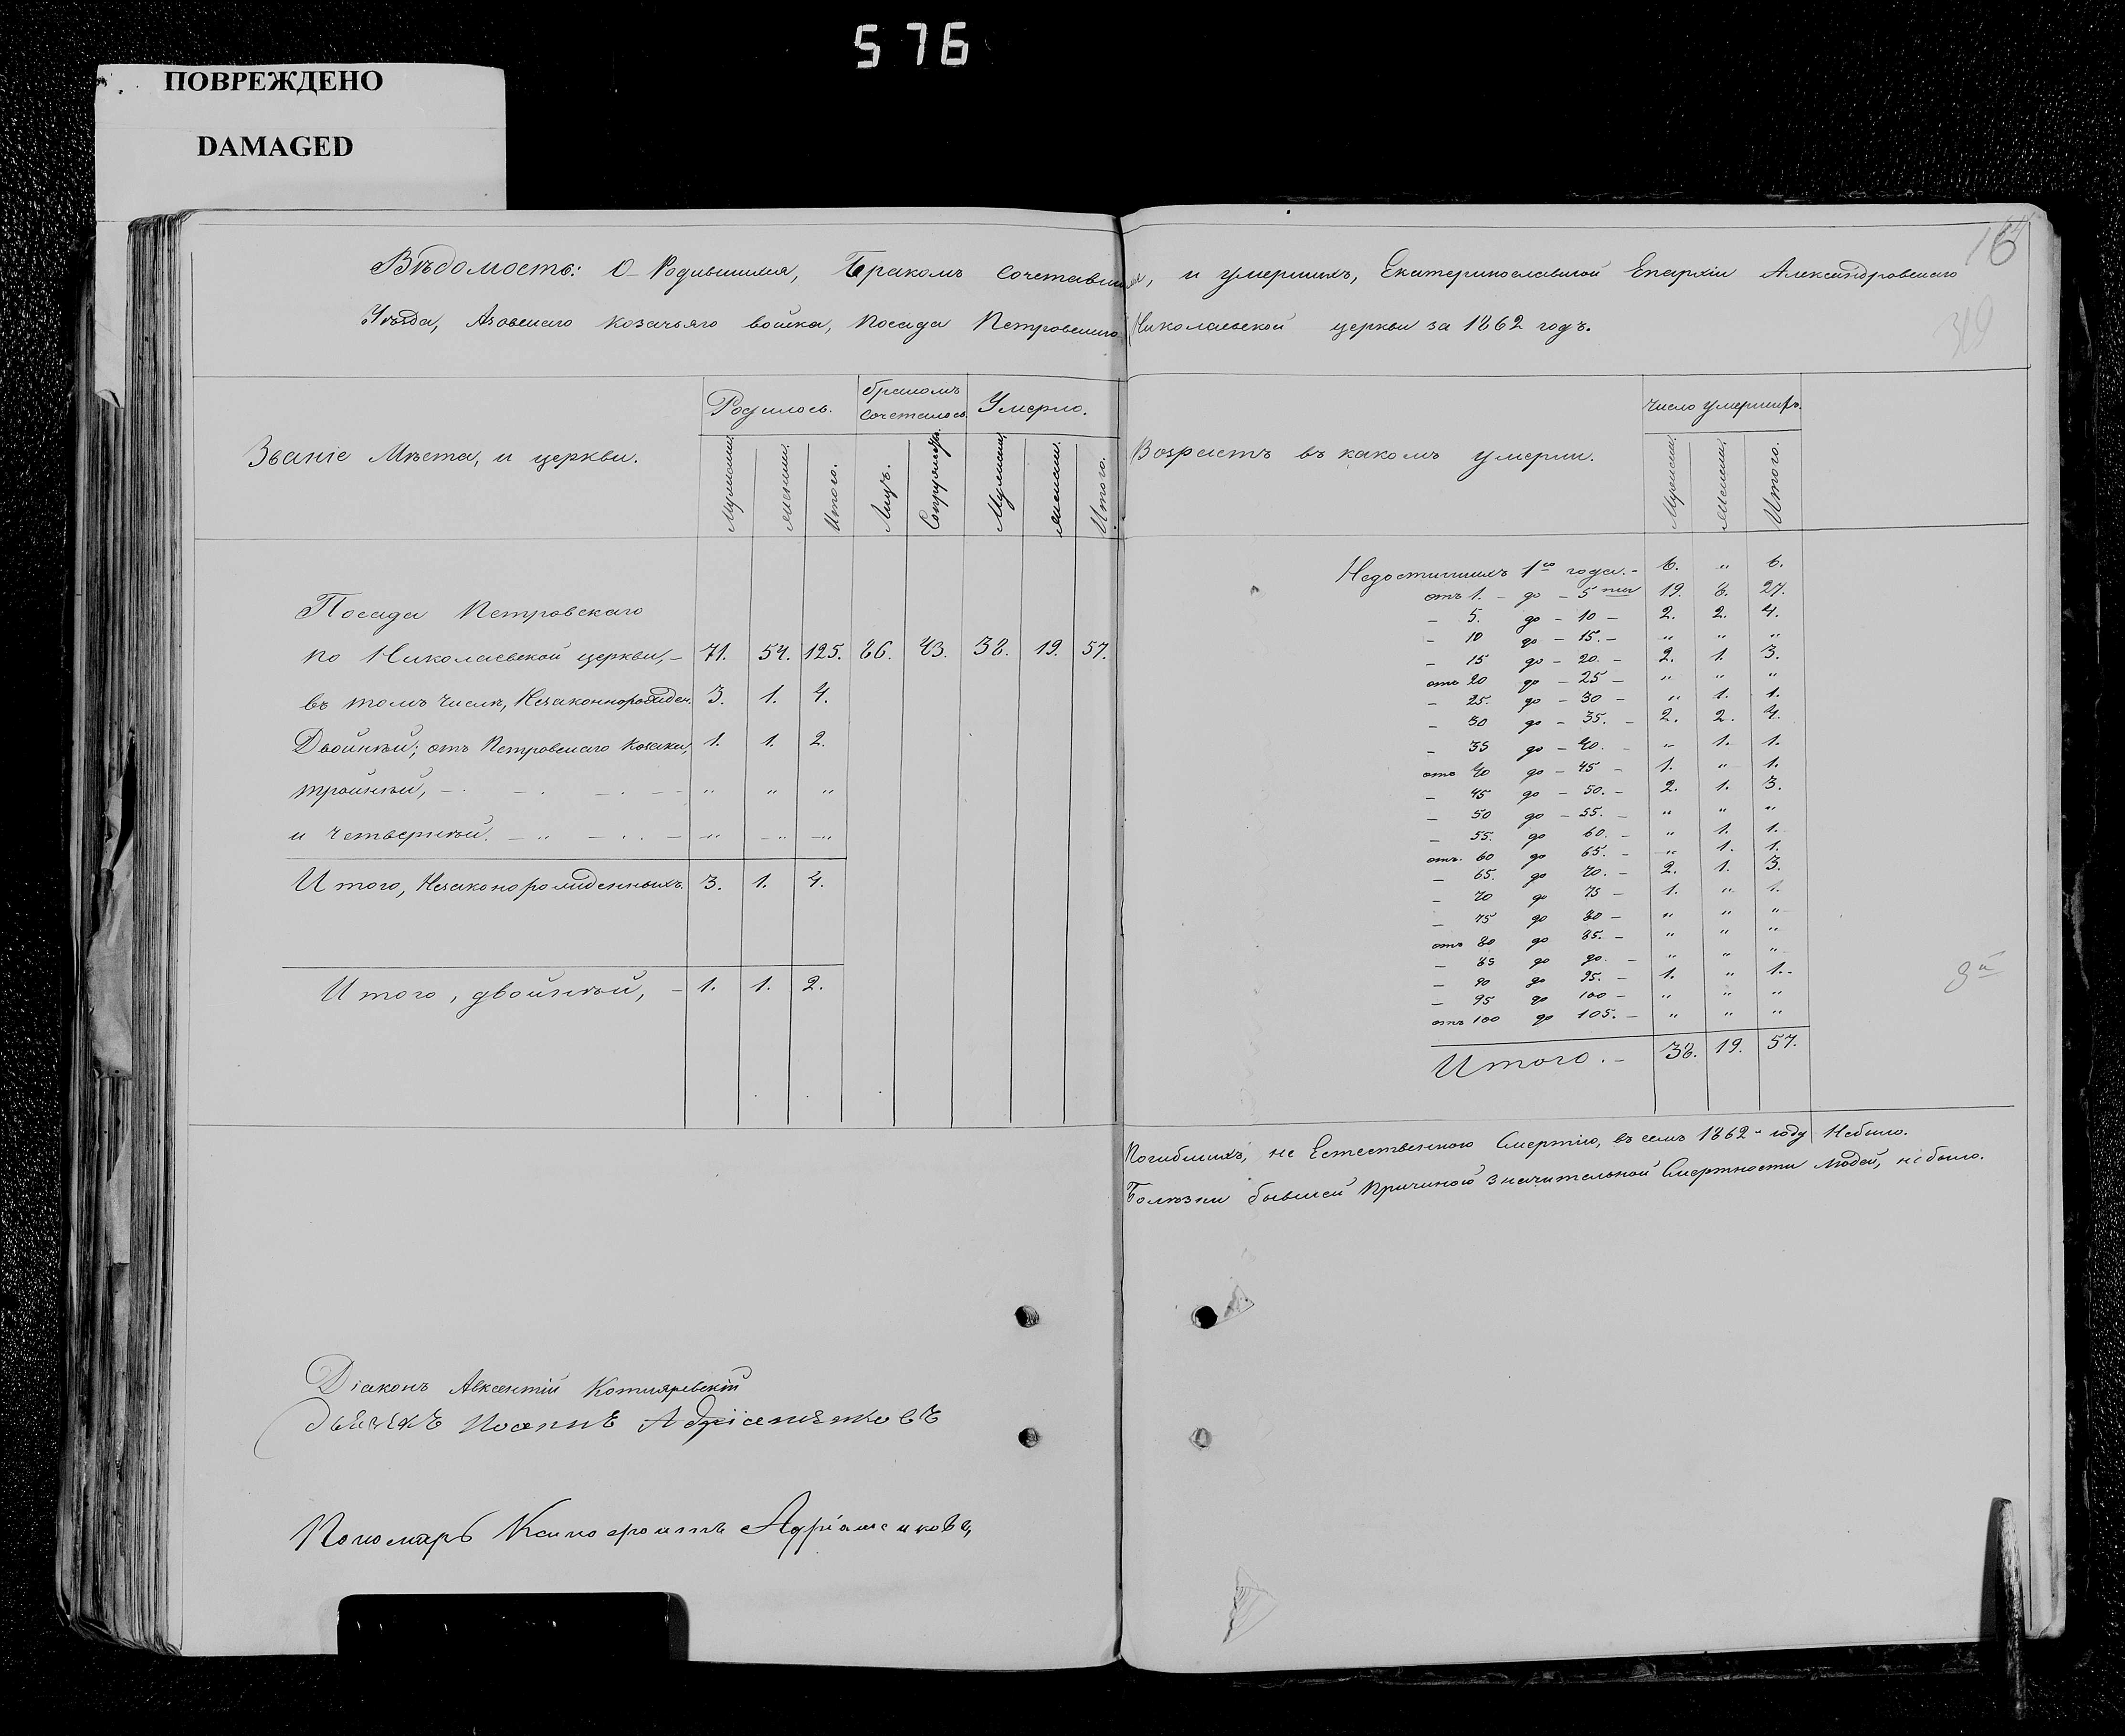 576
ПОВРЕЖДЕНО
DAMAGED
Вѣдомость: О Родившихся, Бракомъ Сочетавшихся, и умершихъ, Екатеринославской Епархіи Александровскаго
Уѣзда, Азовскаго козачьяго войска, Посада Петровскаго Николаевской церкви за 1862 годъ.
Званіе Мѣста, и церкви.
Родилось. бракомъ сочеталось. Умерло.
Мужеска. женска. Итого. Лицъ. Супружествъ. Мужеска. женска. Итого.
Посада Петровскаго
по Николаевской церкви, – 71. 54. 125. 86. 43. 38. 19. 57.
въ томъ числѣ, Незаконнорожден. 3. 1. 4.
Двойнѣй; отъ Петровскаго козака, 1. 1. 2.
тройнѣй, – „ „ „
и четвернѣй. – „ – „ – „
Итого, Незаконорожденныхъ. 3. 1. 4.
Итого, двойнѣй, – 1. 1. 2.
Діаконъ Авксентій Котляревскій
дьячекъ Иоаннъ
Пономарь
319
Возрастъ въ какомъ умерли.
Число умершихъ.
Мужеска. Женска. Итого.
Недостигшихъ 1го года. – 6. „ 6.
отъ 1. – до – 5ти 19. 8. 27.
– 5. до – 10 – 2. 2. 4.
– 10 до – 15. – „ „ „
– 15 до – 20. – 2. 1. 3.
отъ 20 до – 25 – „ „ „
– 25. до – 30 – „ 1. 1.
– 30 до – 35. – 2. 2. 4.
– 35 до – 40. – „ 1. 1.
отъ 40 до – 45 – 1. „ 1.
– 45 до – 50. – 2. 1. 3.
– 50 до – 55. – „ „ „
– 55. до 60. – „ 1. 1.
отъ. 60 до 65. – „ 1. 1.
– 65. до 70. – 2. 1. 3.
– 70 до 75 – 1. „ 1.
– 75 до 80 – „ „ „
отъ 80 до 85. – „ „ „
– 85 до 90. – „ „ „
– 90 до 95. – 1. „ 1.
– 95 до 100 – „ „ „
отъ 100 до 105. – „ „ „
Итого. – 38. 19. 57.
Погибшихъ, не Естественною Смертію, въ семъ 1862 году Небыло.
Болѣзни бывшей Причиною значительной Смертности людей, не было.